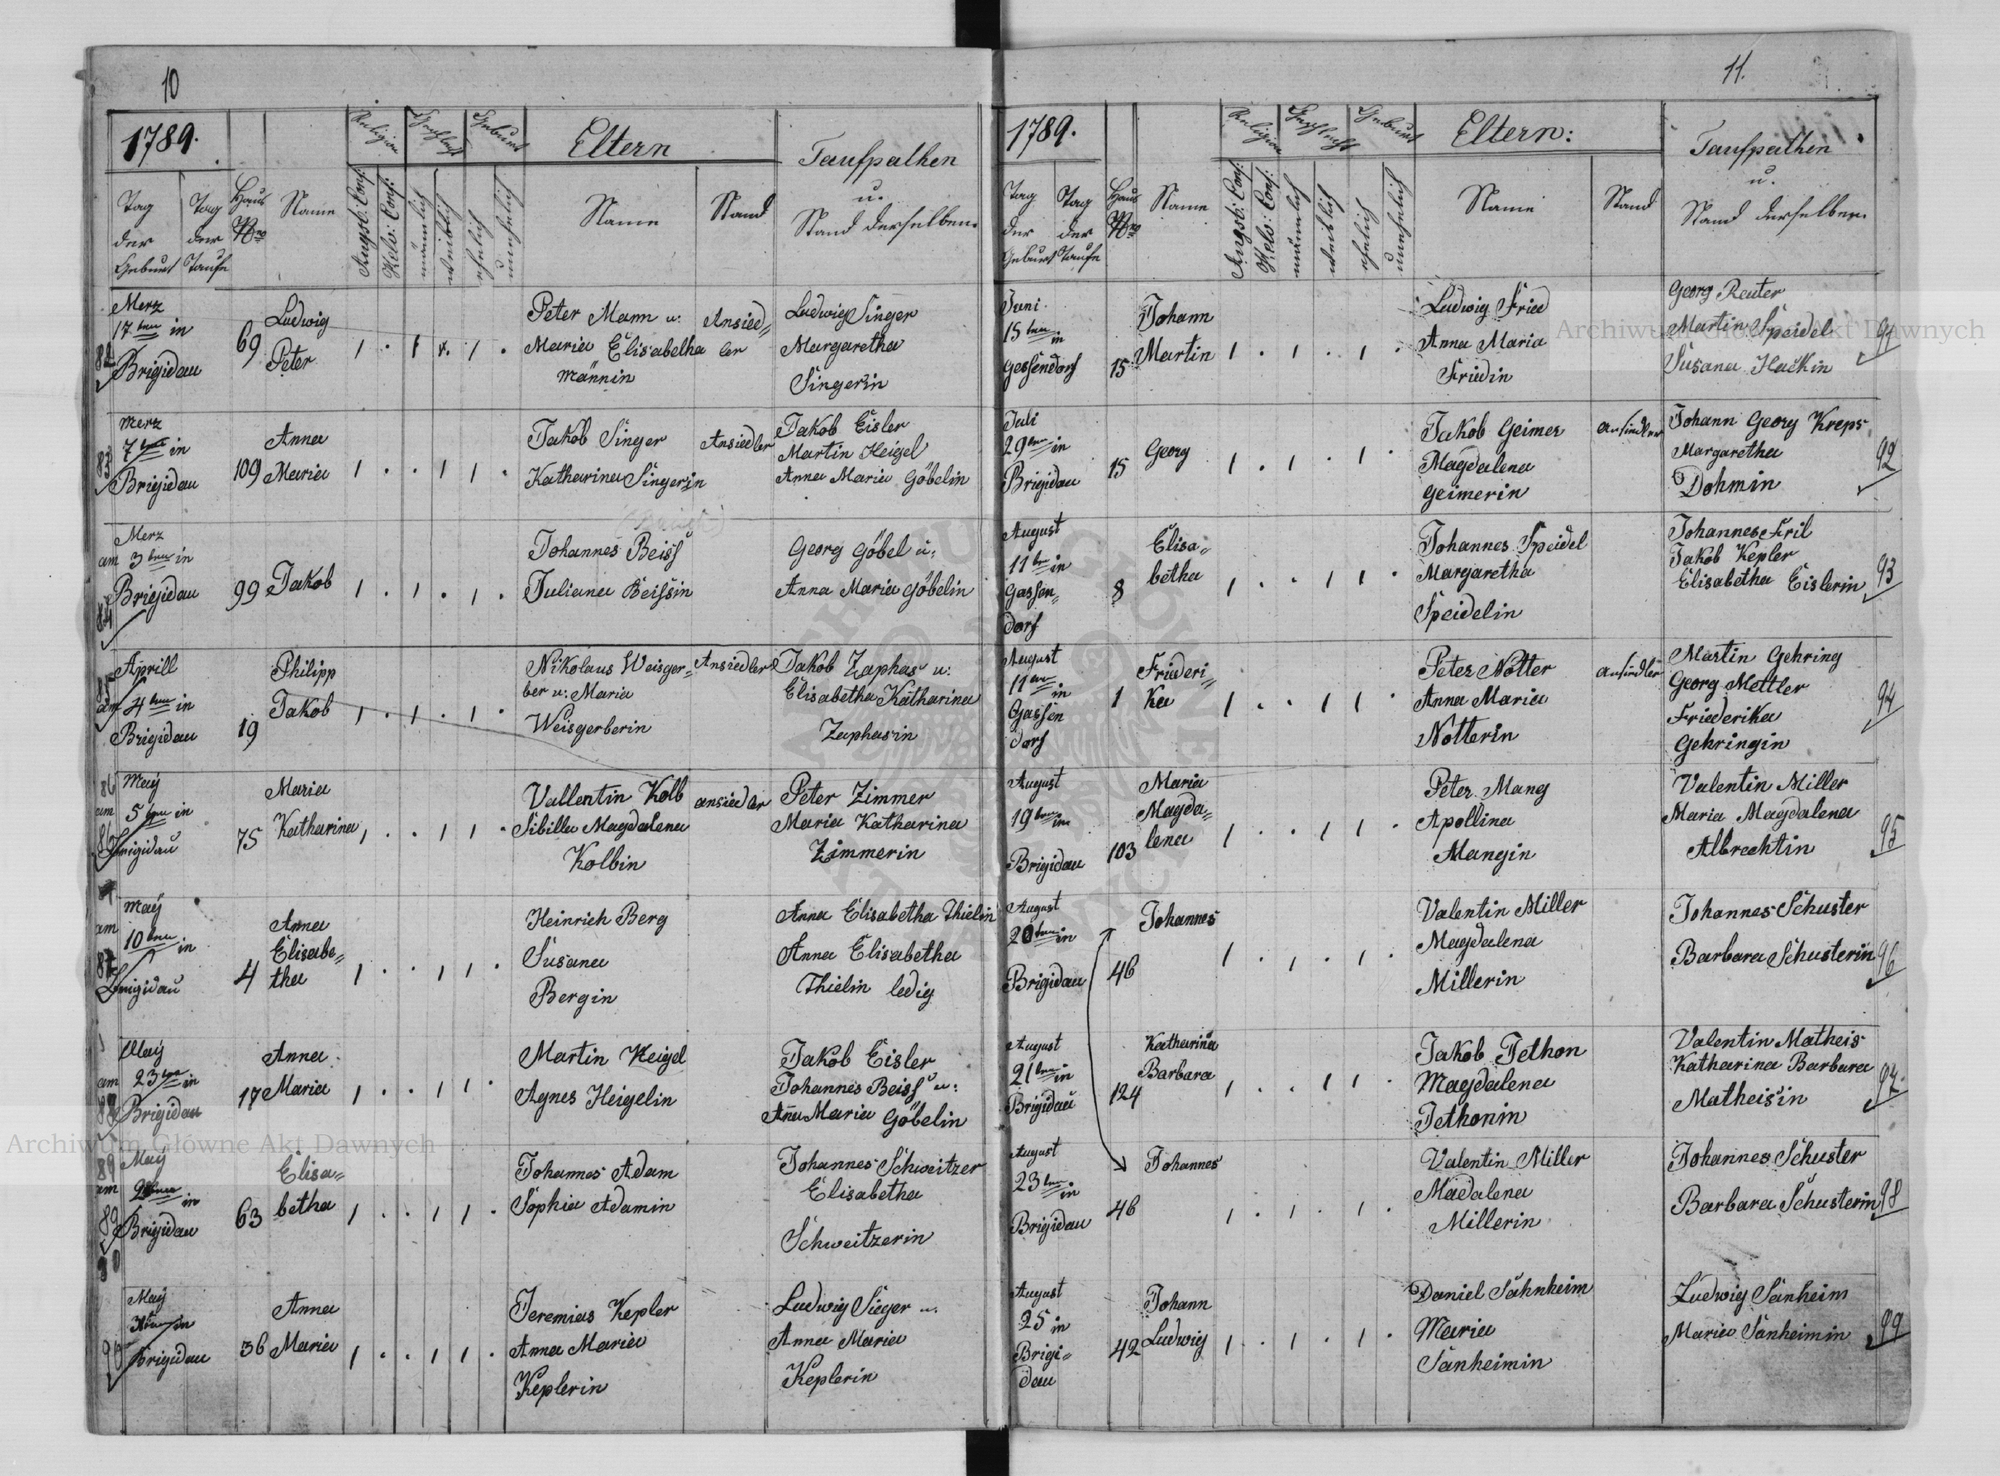 10
1789.
Religion
Geschlecht
Geburt
Eltern
Taufpathen
u.
Stand derselben.
Tag
der
Geburt
Tag
der
Taufe
Haus
Nro
Name
Augsb: Conf:
Helv: Conf:
männlich
weiblich
ehelich
unehelich
Name
Stand
Merz
17ten in
Brigidau
69
Ludwig
Peter
1 . 1 . 1 .
Peter Mann u:
Maria Elisabetha
Männin
Ansied=
ler
Ludwig Singer
Margaretha
Singerin
83
Merz
7ten in
Brigidau
109
Anna
Maria
1 . . 1 1 .
Jakob Singer
Katharina Singerin
Ansiedler
Jakob Eisler
Martin Heigel
Anna Maria Göbelin
84
Merz
am 3ten in
Brigidau
99
Jakob
1 . 1 . 1 .
Johannes Beiss
Juliana Beissin
Georg Göbel u:
Anna Maria Göbelin
85
Aprill
am 4ten in
Brigidau
19
Philipp
Jakob
1 . 1 . 1 .
Nikolaus Weisger=
ber u: Maria
Weisgerberin
Ansiedler
Jakob Zaphas u:
Elisabetha Katharina
Zaphasin
86
May
am 5ten in
Brigidau
75
Maria
Katharina
1 . . 1 1 .
Vallentin Kolb
Sibilla Magdalena
Kolbin
ansiedler
Peter Zimmer
Maria Katharina
Zimmerin
87
May
am 10ten in
Brigidau
4
Anna
Elisabe=
tha
1 . . 1 1 .
Heinrich Berg
Susana
Bergin
Anna Elisabetha Thielin
Anna Elisabetha
Thielin ledig
88
May
am 23ten in
Brigidau
17
Anna
Maria
1 . . 1 1 .
Martin Heigel
Agnes Heigelin
Jakob Eisler
Johannes Beiss u:
Ana Maria Göbelin
89
May
am
in
Brigidau
63
Elisa=
betha
1 . . 1 1 .
Johannes Adam
Sophia Adamin
Johannes Schweitzer
Elisabetha
Schweitzerin
90
May
in
Brigidau
36
Anna
Maria
1 . . 1 1 .
Jeremias Kepler
Anna Maria
Keplerin
Ludwig Sieger u:
Anna Maria
Keplerin
11.
1789.
Religion
Geschlecht
Geburt
Eltern:
Taufpathen
u.
Stand derselben.
Tag
der
Geburt
Tag
der
Taufe
Haus
Nro
Name
Augsb: Conf:
Helv: Conf:
männlich
weiblich
ehelich
unehelich
Name
Stand
Juni
15ten in
Gessendorf
15
Johann
Martin
1 . 1 . 1 .
Ludwig Fried
Anna Maria
Friedin
Georg Reuter
Martin Speidel
Susana Hackin
91
Juli
29ten in
Brigidau
15
Georg
1 . 1 . 1 .
Jakob Geimer
Magdalena
Geimerin
Ansiedler
Johann Georg Kreps
Margaretha
Dohmin
92
August
11ten in
Gassen=
dorf
8
Elisa=
betha
1 . . 1 1 .
Johannes Speidel
Margaretha
Speidelin
Johannes Fril
Jakob Kepler
Elisabetha Eislerin
93
August
11ten in
Gassen
dorf
1
Friederi=
ka
1 . . 1 1 .
Peter Notter
Anna Maria
Notterin
Ansiedler
Martin Gehring
Georg Mettler
Friederika
Gehringin
94
August
19ten in
Brigidau
103
Maria
Magda=
lena
1 . . 1 1 .
Peter Mang
Apollina
Mangin
Valentin Miller
Maria Magdalena
Albrechtin
95
August
20ten in
Brigidau
46
Johannes
1 . 1 . 1 .
Valentin Miller
Magdalena
Millerin
Johannes Schuster
Barbara Schusterin
96
August
21ten in
Brigidau
124
Katharina
Barbara
1 . . 1 1 .
Jakob Jethon
Magdalena
Jethonin
Valentin Matheis
Katharina Barbara
Matheisin
97
August
23ten in
Brigidau
46
Johannes
1 . 1 . 1 .
Valentin Miller
Madalena
Millerin
Johannes Schuster
Barbara Schusterin
98
August
25 in
Brigi=
dau
42
Johann
Ludwig
1 . 1 . 1 .
Daniel Sahnheim
Maria
Sanheimin
Ludwig Sanheim
Maria Sanheimin
99
Archiwum Główne Akt Dawnych
Archiwum Główne Akt Dawnych